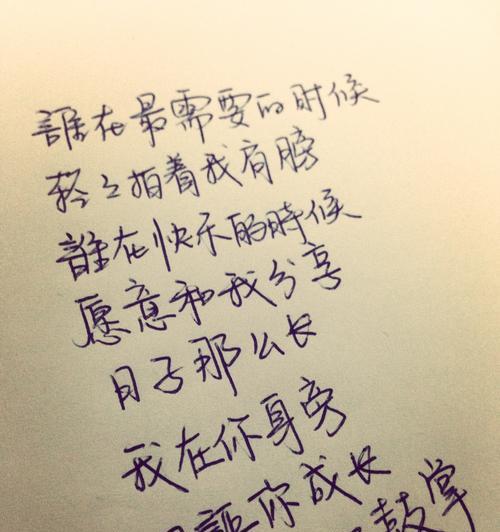 誰在最需要的时候
轻轻拍着我肩膀
誰在快乐的時候
愿意和我分享
日子那么长
我在你身旁
你成长
鼓掌